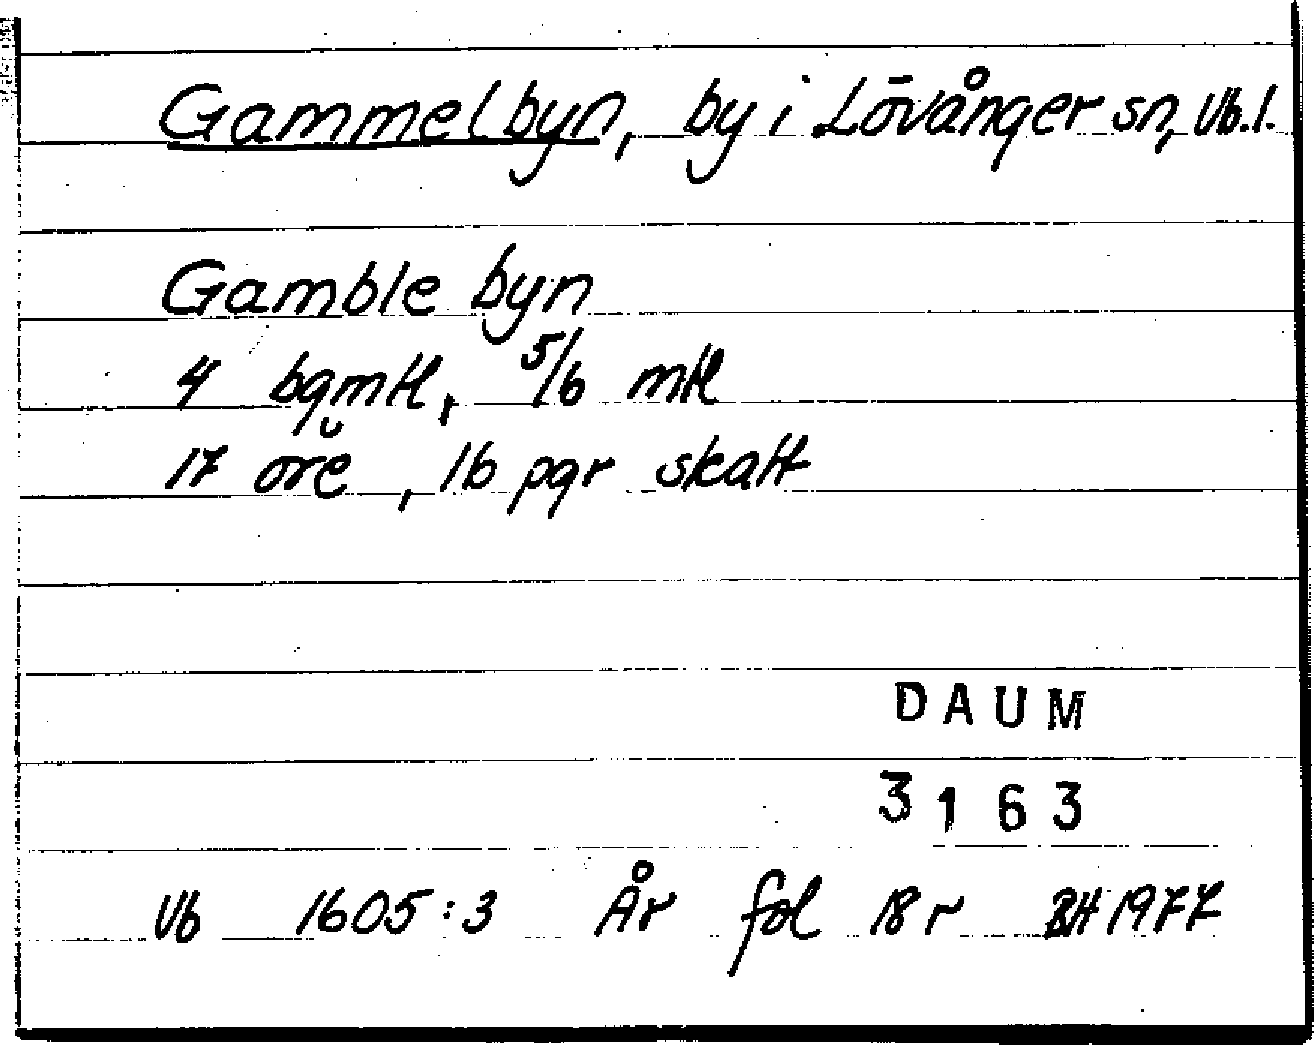 Gammelbyn, by i Lövånger sn, Vb.l.
Gamble byn
4 bgmtl, 5/6 mtl
17 öre, 16 pgr skatt
DAUM
3163
Vb 1605:3 År fol 18 r BH 1977